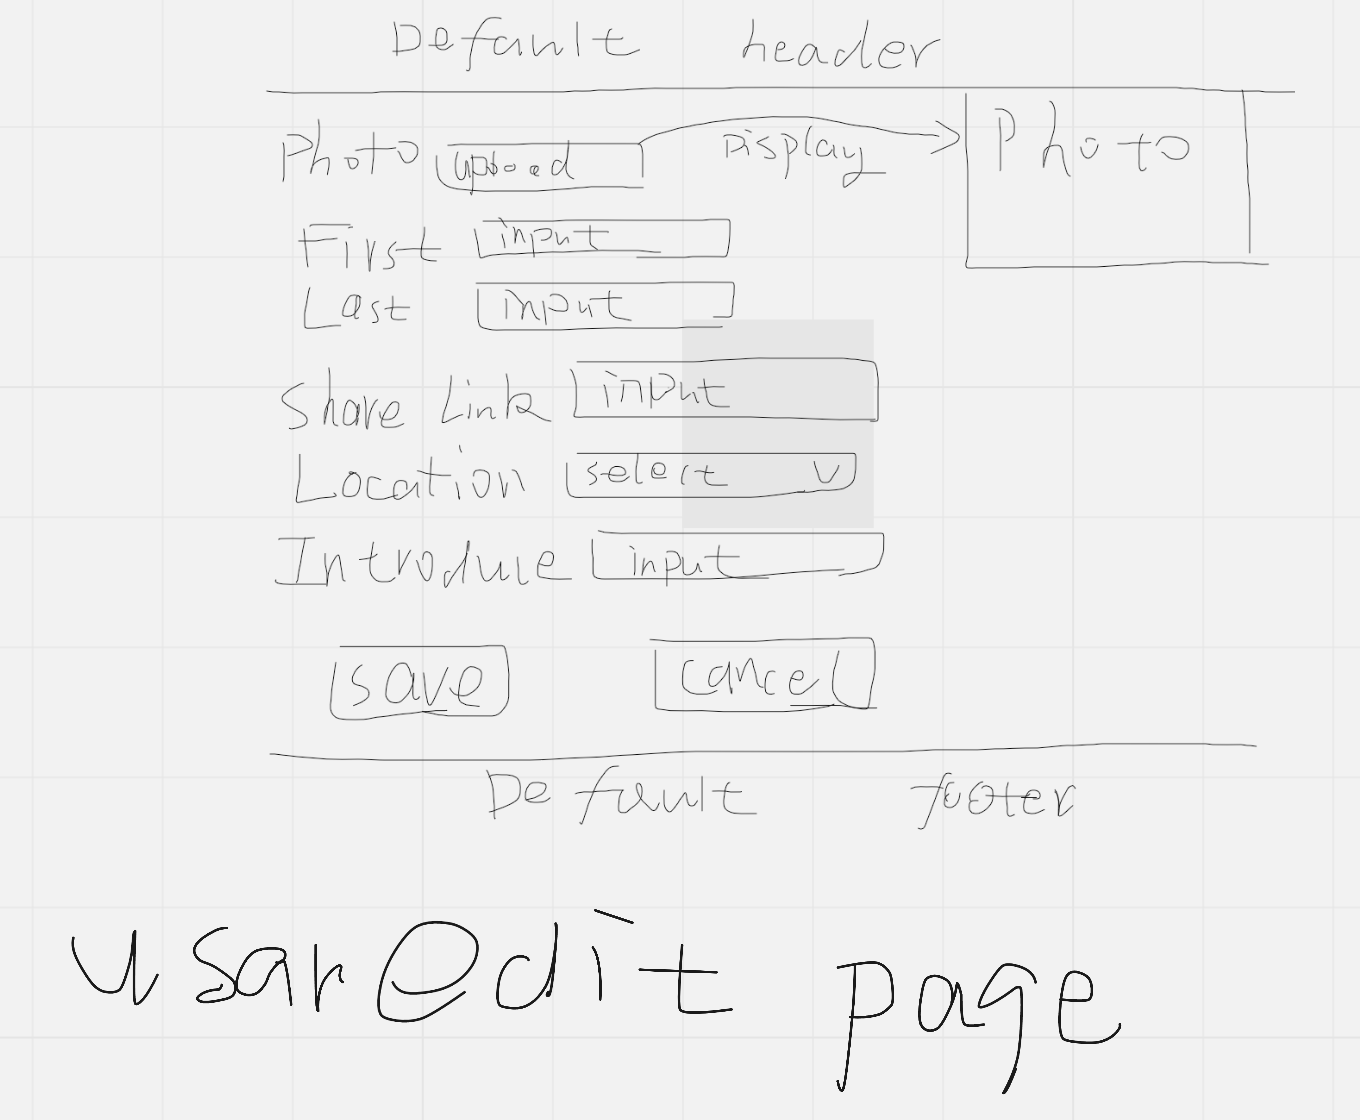 Default header
Photo upload Display Photo
First input
Last input
Share Link input
Location select v
Introduce input
save cancel
Default footer
usaredit page